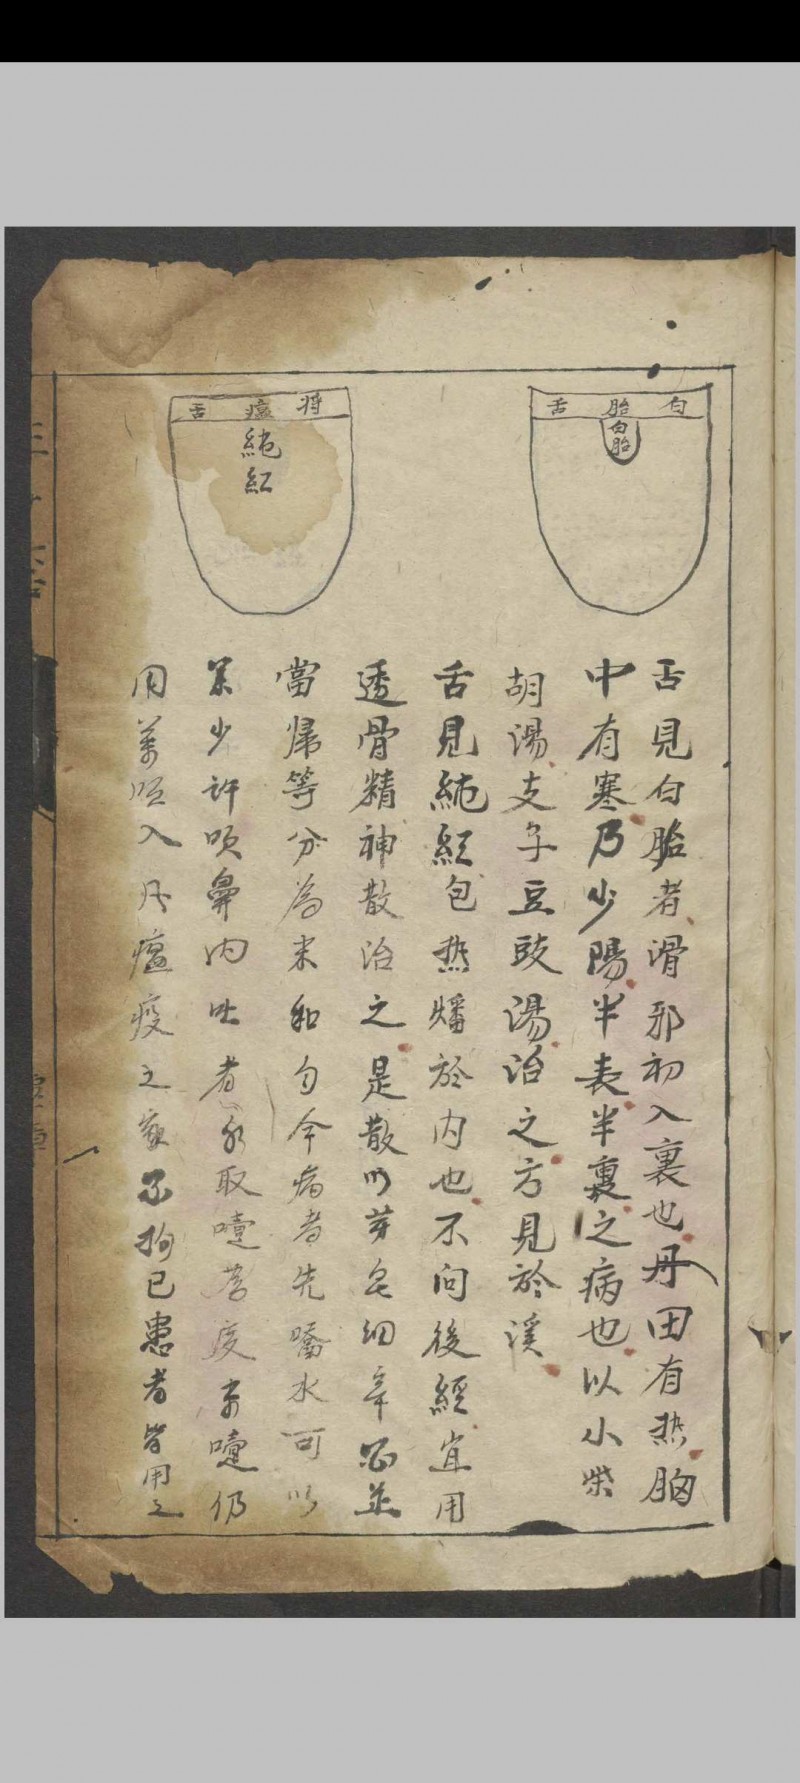 白胎舌
白胎
舌見白胎者滑邪初入裏也丹田有热胸
中有寒乃少陽半表半裏之病也以小柴
胡湯支子豆豉湯治之方見於溪
将瘟舌
純
紅
舌見純紅包热燔於内也不问後經宜用
透骨精神散治之是散以芽皂细辛
當帰等分為末和匀令病者先噙水可以
少許嗅鼻内吐者取嚏仍
用入瘟疫之家不拘已患者皆用之